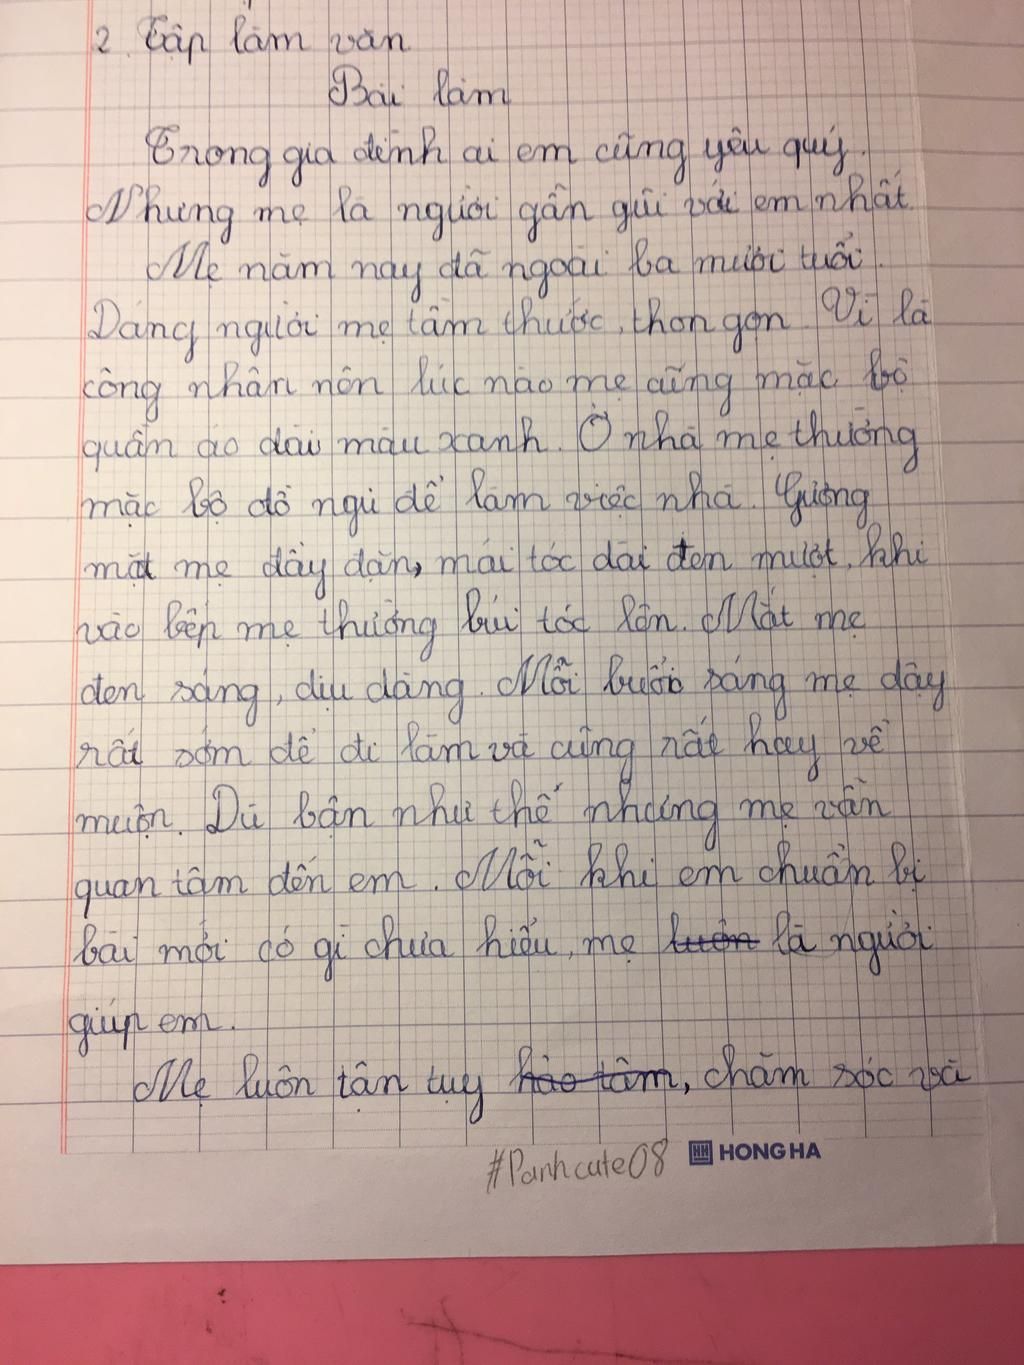 2. Tập làm văn
Bài làm
Trong gia đình ai em cũng yêu quý.
Nhưng mẹ là người gần gũi với em nhất.
Mẹ năm nay đã ngoài ba mươi tuổi.
Dáng người mẹ tầm thước, thon gọn. Vì là
công nhân nên lúc nào mẹ cũng mặc bộ
quần áo dài màu xanh. Ở nhà mẹ thường
mặc bộ đồ ngủ để làm việc nhà. Gương
mặt mẹ đầy đặn, mái tóc dài đen mượt, khi
vào bếp mẹ thường búi tóc lên. Mắt mẹ
đen sáng, dịu dàng. Mỗi buổi sáng mẹ dậy
rất sớm để đi làm và cũng rất hay về
muộn. Dù bận như thế nhưng mẹ vẫn
quan tâm đến em. Mỗi khi em chuẩn bị
bài mới có gì chưa hiểu, mẹ luôn là người
giúp em.
Mẹ luôn tận tụy hảo tâm, chăm sóc và
#Panhcute08 HONG HA